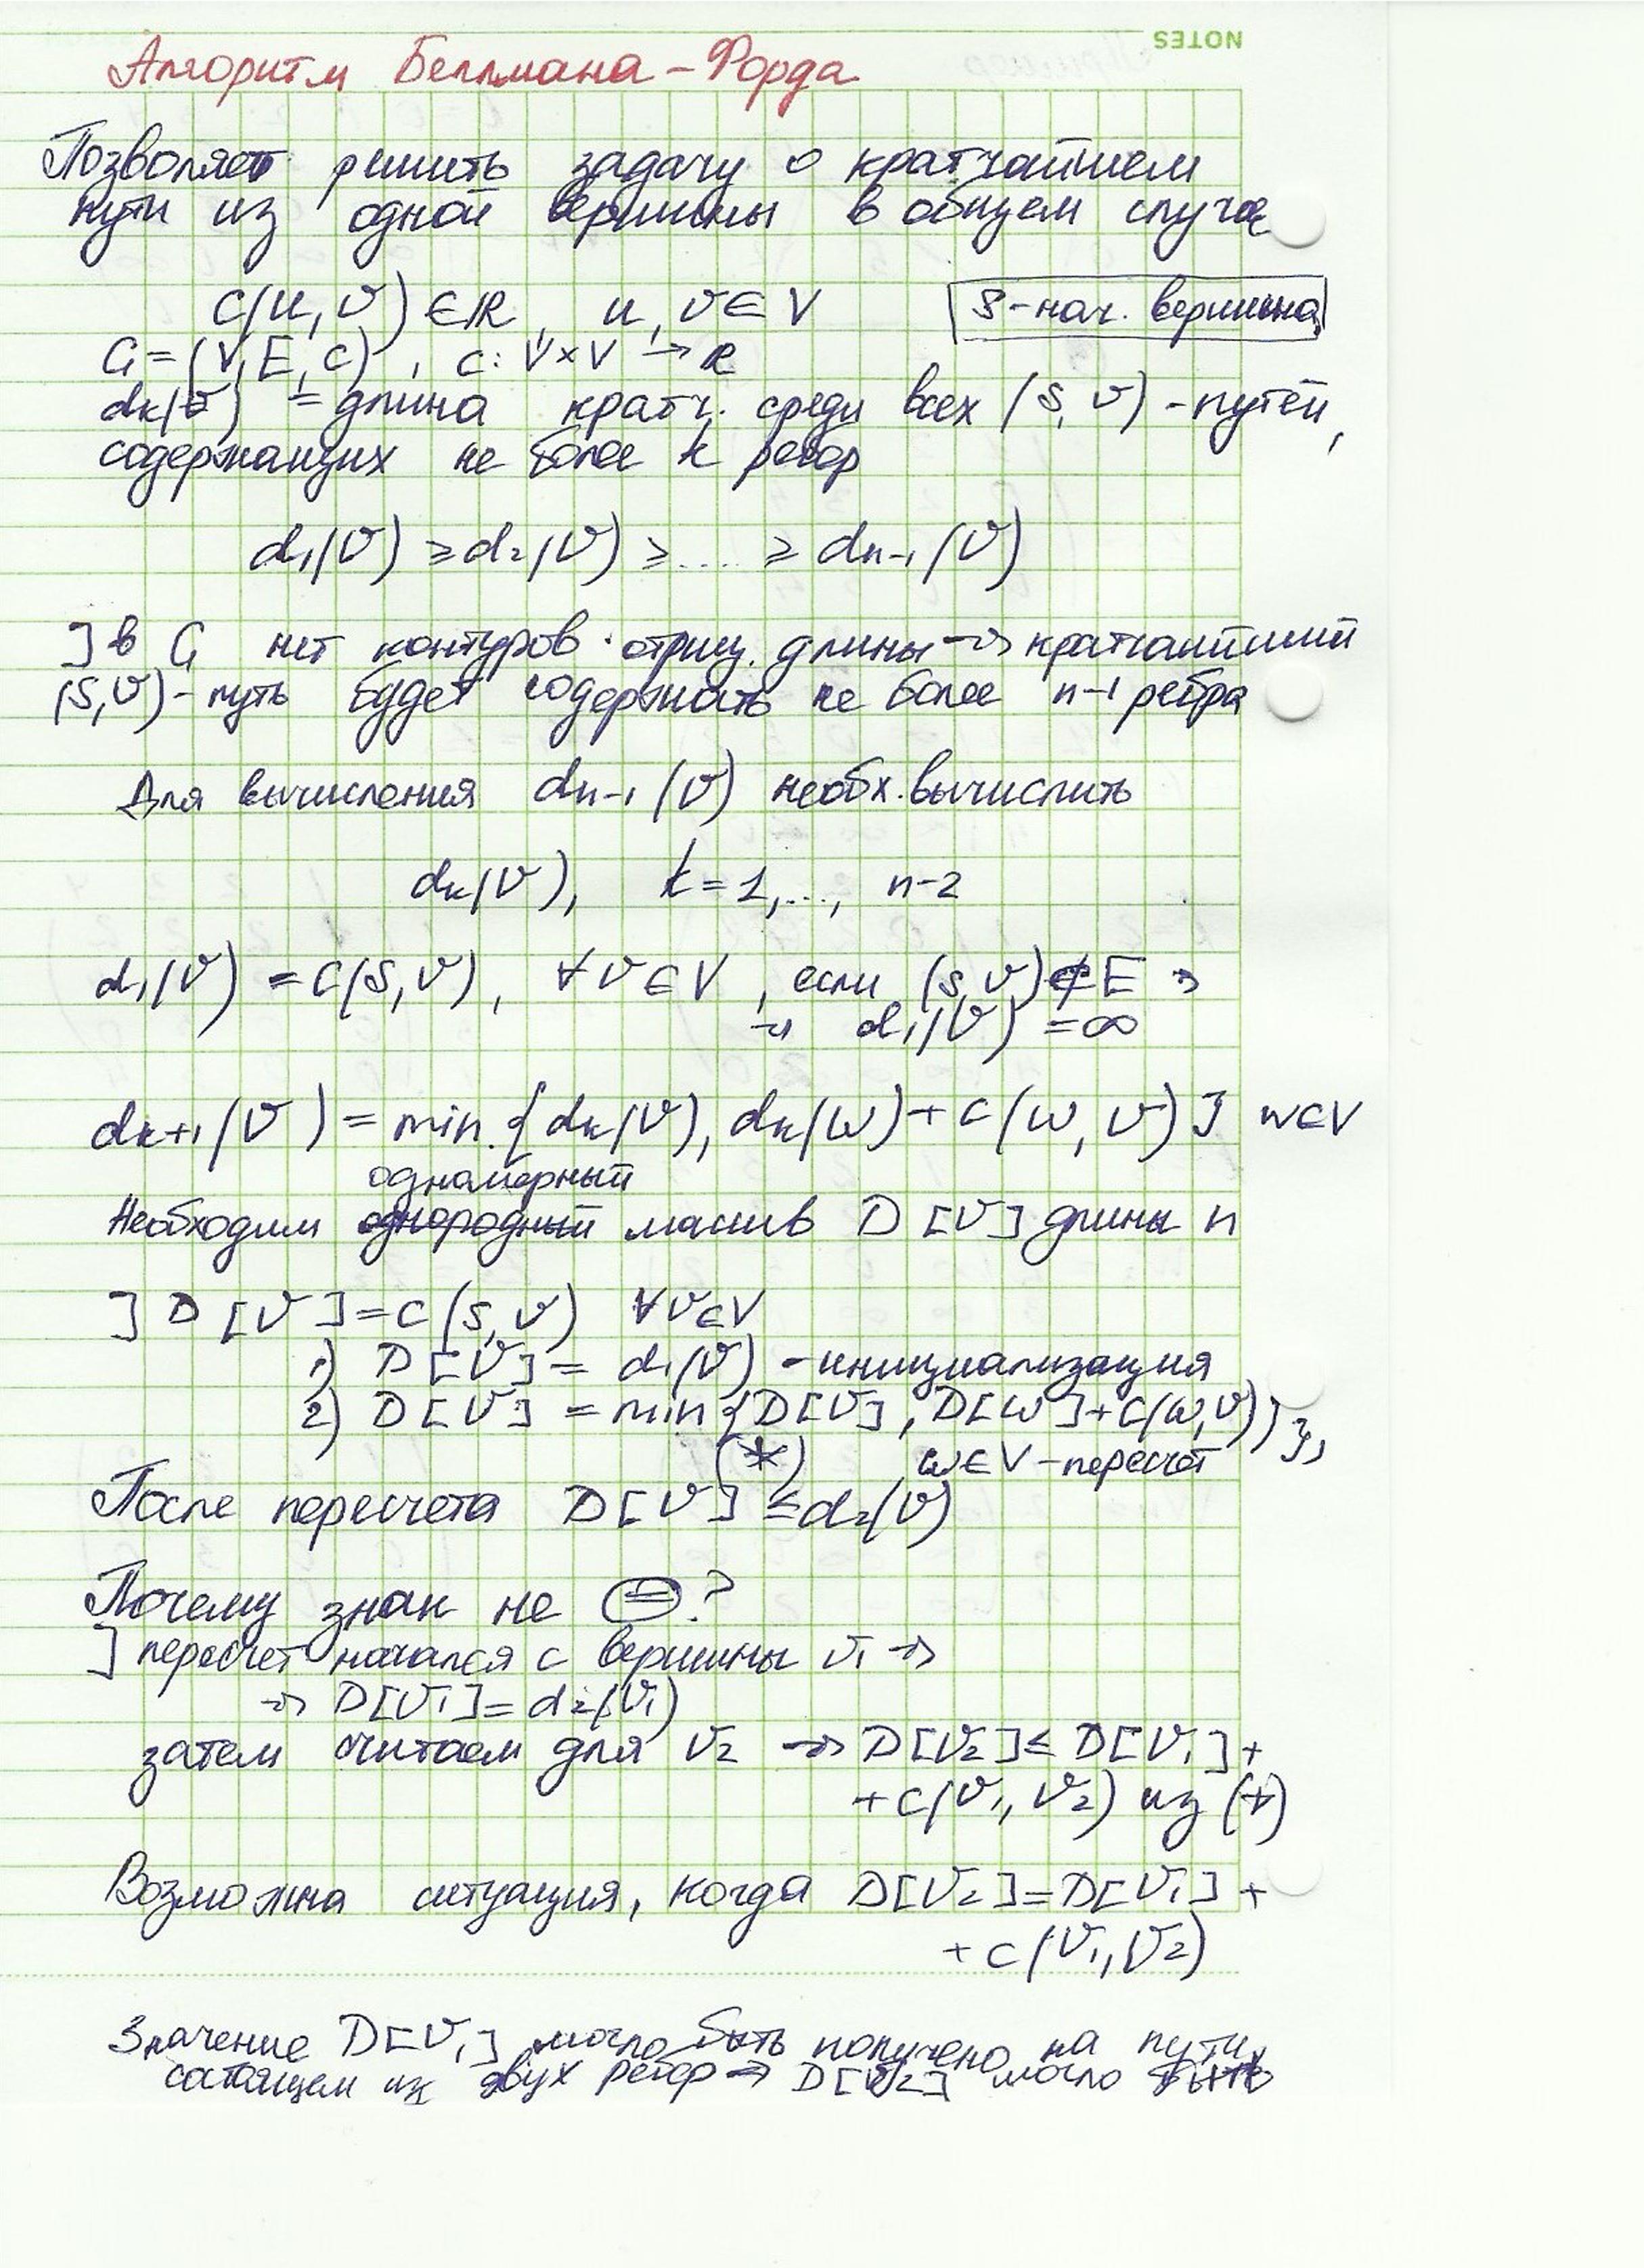 NOTES
Алгоритм Беллмана – Форда
Позволяет решить задачу о кратчайшем
пути из одной вершины в общем случае
C(u, v) ∈ R, u, v ∈ V
S – нач. вершина
G = (V, E, c), c: V×V → R
dk(v) = длина кратч. среди всех (S, v) - путей,
содержащих не более k ребер
d1(v) ≥ d2(v) ≥ .... ≥ dn-1(v)
] в G нет контуров отриц. длины => кратчайший
(S, v) - путь будет содержать не более n-1 ребра
Для вычисления dn-1(v) необх. вычислить
dk(v), k = 1, ..., n-2
d1(v) = C(S, v), ∀ v ∈ V, если (s, v) ∉ E =>
=> d1(v) = ∞
dk+1(v) = min {dk(v), dk(w) + c(w, v)} w ∈ V
одномерный
Необходим однородный массив D[v] длины n
] D[v] = c(s, v) ∀ v ∈ V
1) D[v] = d1(v) - инициализация
2) D[v] = min {D[v], D[w] + c(w, v))},
(*) w ∈ V - пересчёт
После пересчета D[v] ≤ d2(v)
Почему знак не = ?
] пересчет начался с вершины v1 =>
=> D[v1] = d2(v1)
затем считаем для v2 => D[v2] ≤ D[v1] +
+ c(v1, v2) из (*)
Возможна ситуация, когда D[v2] = D[v1] +
+ c(v1, v2)
Значение D[v1] могло быть получено на пути,
состоящем из двух ребер => D[v2] могло быть